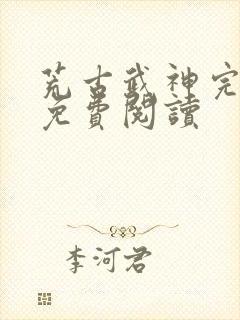 荒古武神完
免費閱讀
李河君